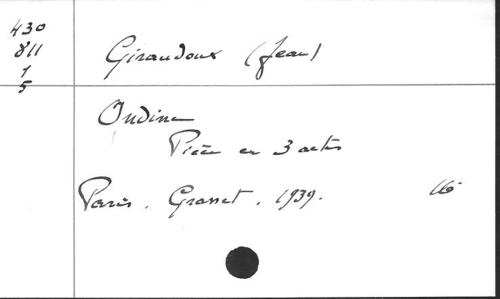 430
811
1
5
Giraudoux (Jean)
Ondine
Pièce en 3 actes
Paris. Grasset. 1939. 16°